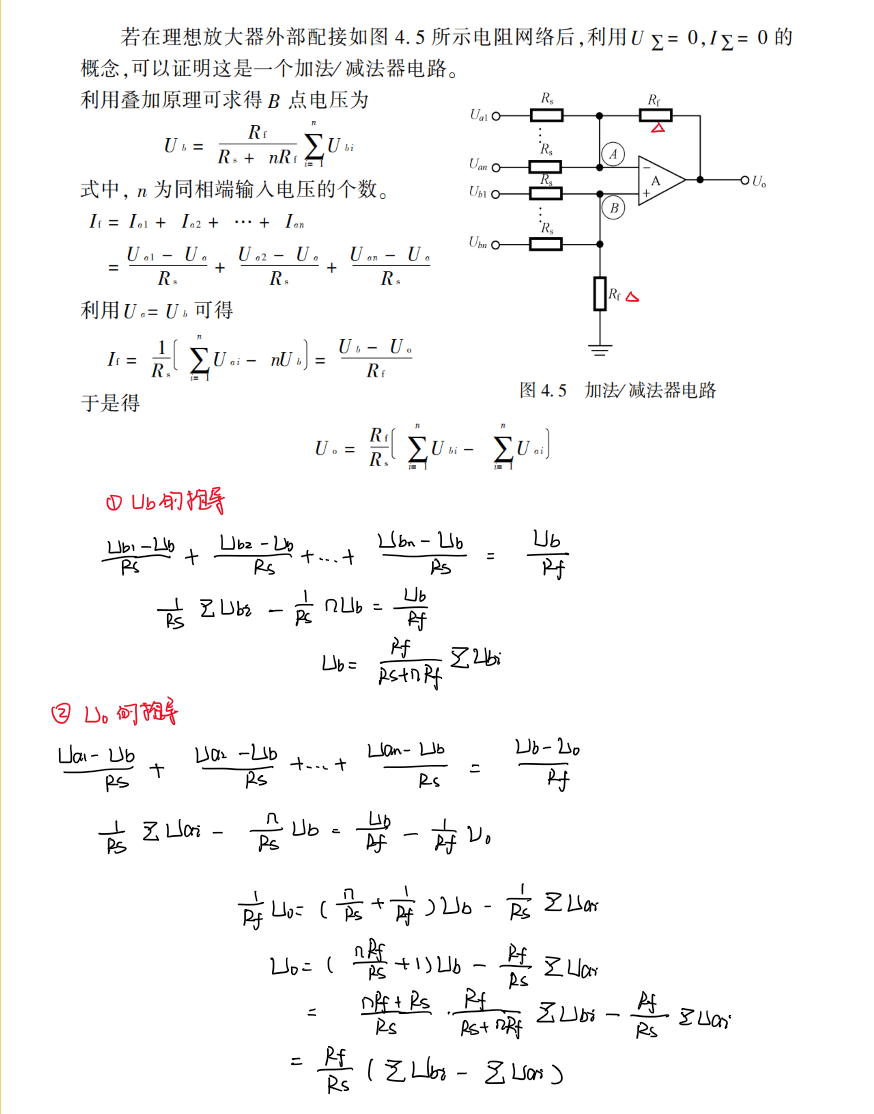 若在理想放大器外部配接如图 4.5 所示电阻网络后,利用 U Σ = 0, I Σ = 0 的
概念,可以证明这是一个加法/减法器电路。
利用叠加原理可求得 B 点电压为
U b = Rf / (Rs + nRf) ∑_{i=1}^{n} U bi
式中, n 为同相端输入电压的个数。
If = Ia1 + Ia2 + ⋯ + Ian
= (Ua1 − Ua) / Rs + (Ua2 − Ua) / Rs + (Uan − Ua) / Rs
利用 Ua = Ub 可得
If = 1/Rs ( ∑_{i=1}^{n} U ai − nUb ) = (Ub − Uo) / Rf
于是得
Uo = Rf/Rs ( ∑_{i=1}^{n} U bi − ∑_{i=1}^{n} U ai )
Rs
Rf
Ua1
Δ
Rs
A
Uan
Rs
−
A
Ub1
+
Uo
B
Rs
Ubn
Rf Δ
图 4.5 加法/减法器电路
① Ub的推导
(Ub1 − Ub)/Rs + (Ub2 − Ub)/Rs + ... + (Ubn − Ub)/Rs = Ub/Rf
1/Rs ΣUbi − 1/Rs nUb = Ub/Rf
Ub = Rf/(Rs+nRf) ΣUbi
② Uo 的推导
(Ua1 − Ub)/Rs + (Ua2 − Ub)/Rs + ... + (Uan − Ub)/Rs = (Ub − Uo)/Rf
1/Rs ΣUai − n/Rs Ub = Ub/Rf − 1/Rf Uo
1/Rf Uo = ( n/Rs + 1/Rf ) Ub − 1/Rs ΣUai
Uo = ( nRf/Rs + 1 ) Ub − Rf/Rs ΣUai
= (nRf + Rs)/Rs · Rf/(Rs + nRf) ΣUbi − Rf/Rs ΣUai
= Rf/Rs ( ΣUbi − ΣUai )